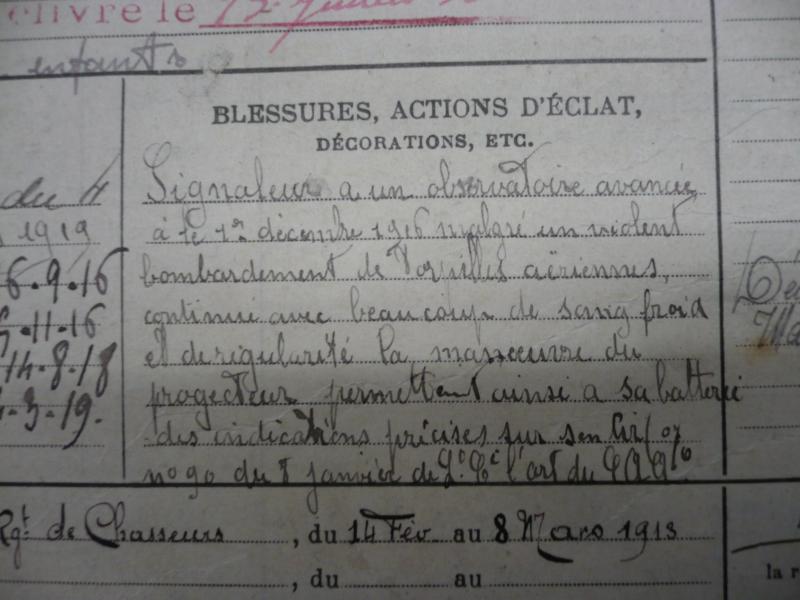 livre le 12
enfants
BLESSURES, ACTIONS D'ÉCLAT,
DÉCORATIONS, ETC.
du 4
1919
6.9.16
.11.16
14.8.18
.3.19.
Signaleur a un observatoire avancée
à le 1er décembre 1916 malgré un violent
bombardement de Torpilles aëriennes,
continué avec beaucoup de sang froid
et de régularité la manoeuvre du
progecteur permettent ainsi a sa batterie
des indications précises sur son tir
no 90 du 8 janvier de l'art du
Dé
Ma
Rgt de Chasseurs, du 14 Fév au 8 Mars 1913
, du au
la r